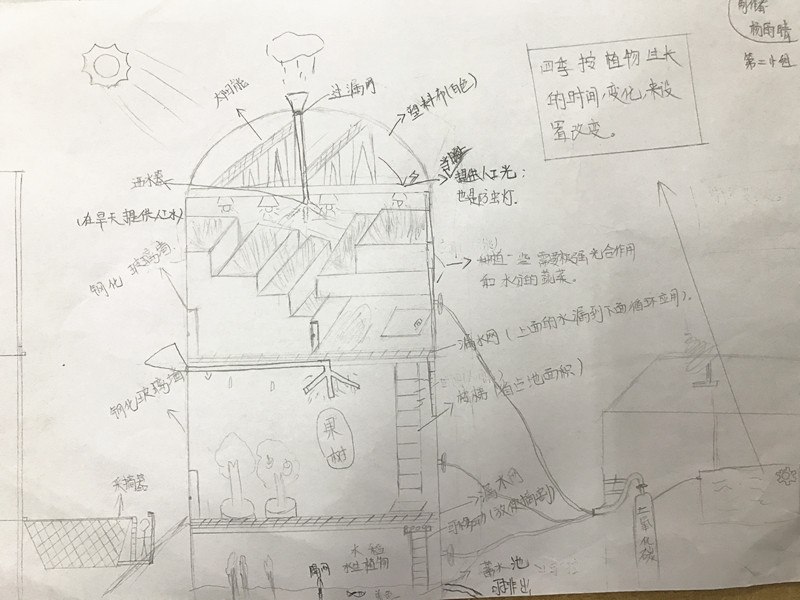 制作者
杨雨晴
第二小组
四季按植物生长
的时间,变化,来设
置改变。
太阳能
过漏网
塑料布(白色)
提供人工光:
也是防虫灯.
进水器
(在旱天提供人工水)
钢化玻璃窗
一些需要较强光合作用
和水分的蔬菜。
漏水网(上面的水漏到下面循环应用).
钢化玻璃窗
楼梯(自占地面积)
果
树
采摘篮
漏水网
二
氧
化
碳
水稻
水生植物
蓄水池
可排出